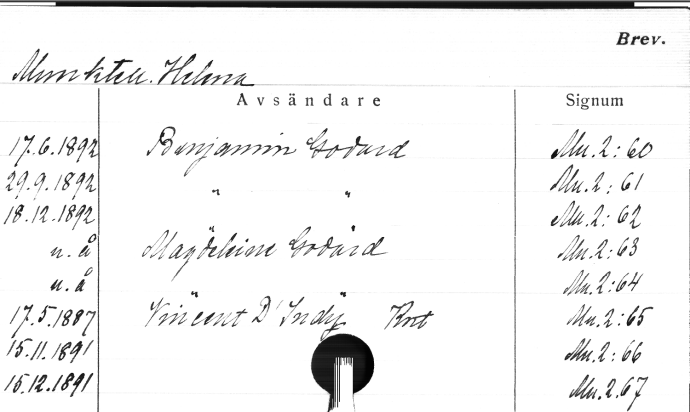 Brev.
Munktell. Helena
Avsändare Signum
17.6.1892 Benjamin Godard Mu. 2:60
29.9.1892 " " Mu. 2:61
18.12.1892 Mu. 2:62
u. å Magdeleine Godard Mu. 2:63
u. å " " Mu. 2:64
17.5.1887 Vincent D'Indy Krt Mu. 2:65
15.11.1891 Mu. 2:66
15.12.1891 Mu. 2.67